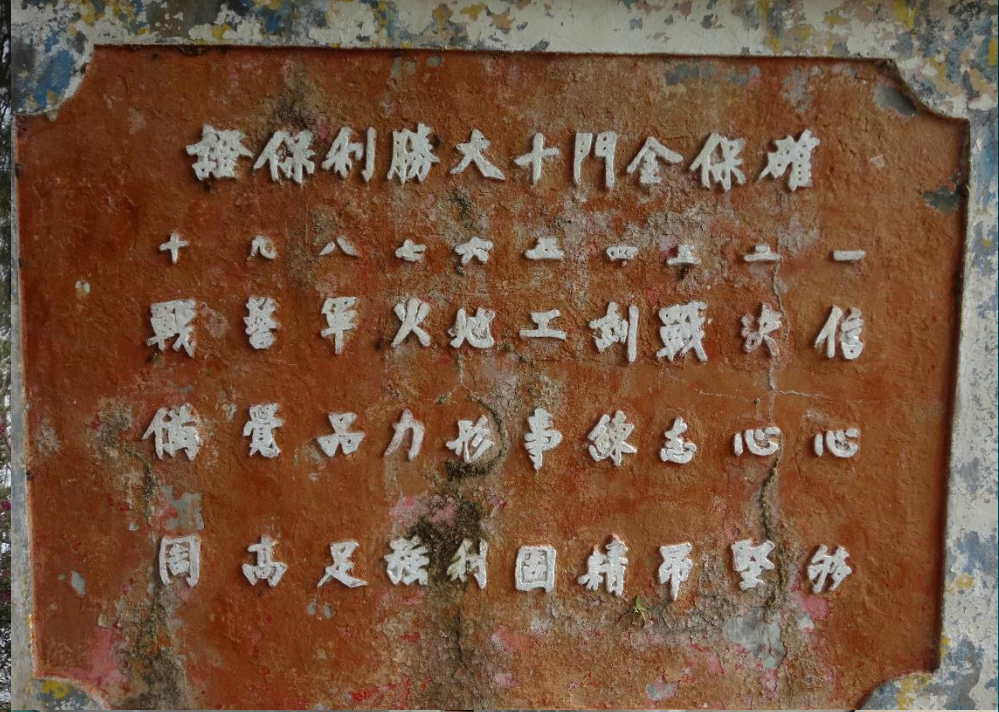 確保金門十大勝利保證
一信心夠
二決心堅
三戰志昂
四訓練精
五工事固
六地形利
七火力強
八軍品足
九警覺高
十戰備周